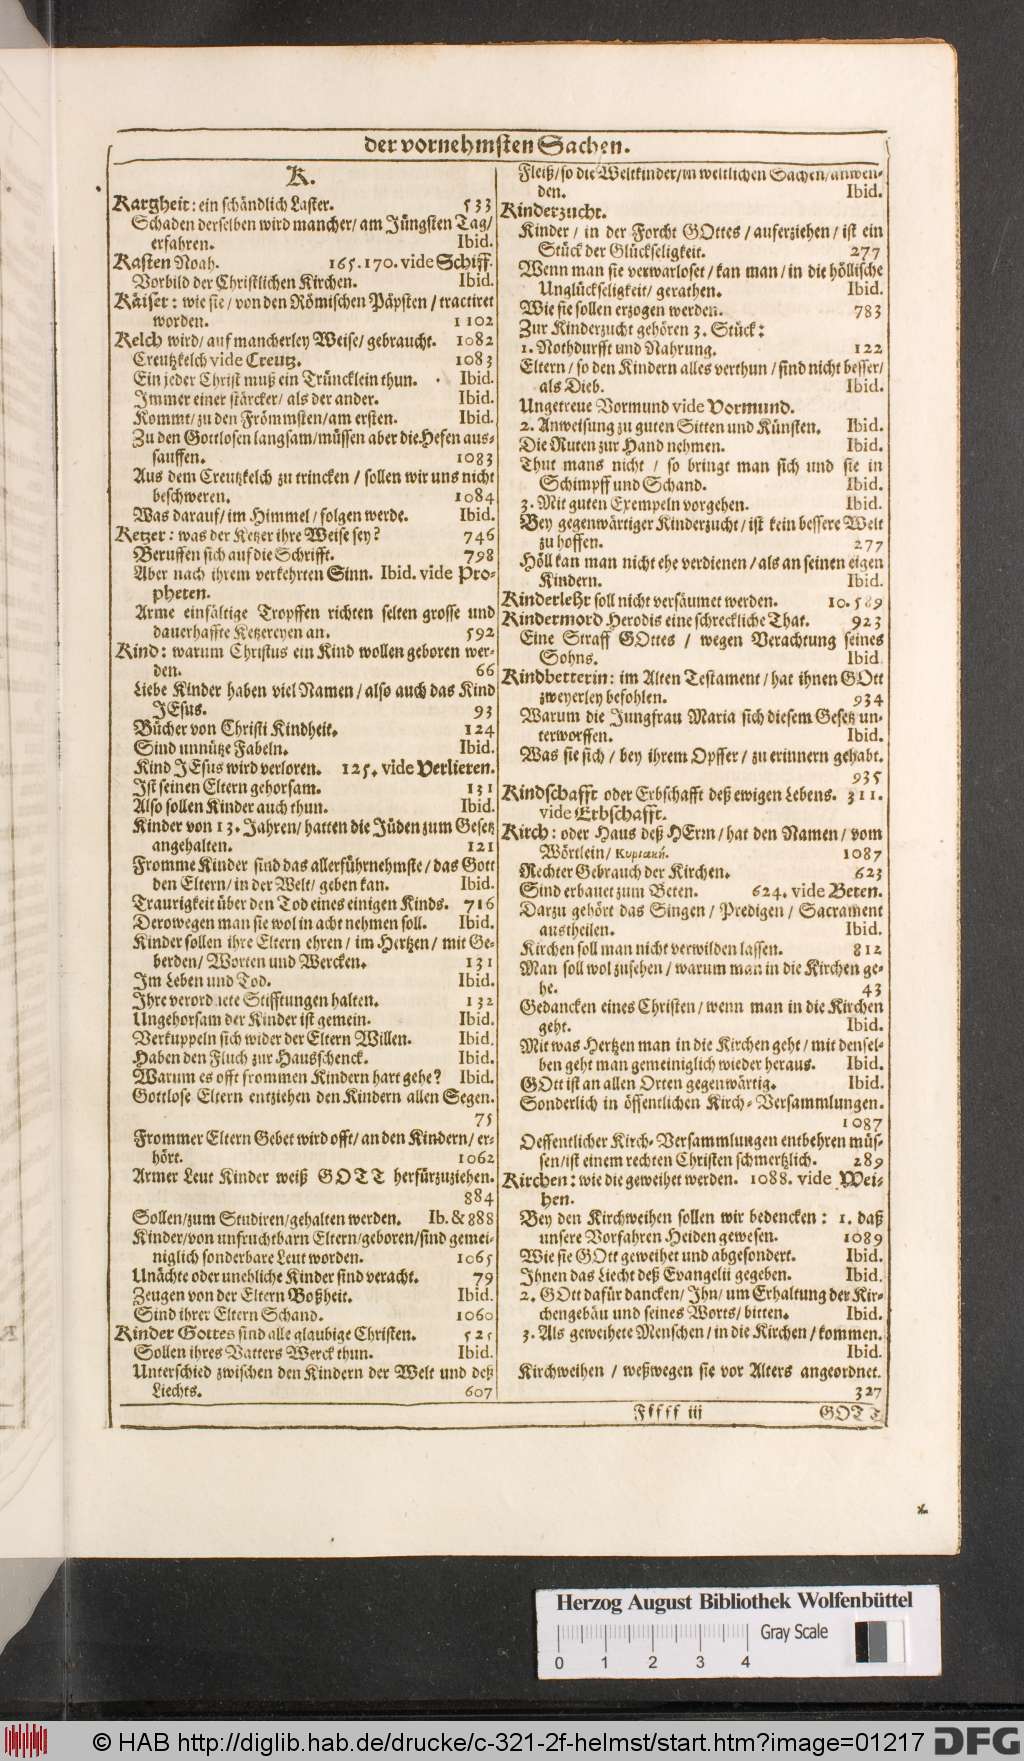 der vornehmsten Sachen.
K.
Kargheit: ein schändlich Laster. 533
Schaden derselben wird mancher/ am Jüngsten Tag/
erfahren. Ibid.
Kasten Noah. 165.170. vide Schiff.
Vorbild der Christlichen Kirchen. Ibid.
Käiser: wie sie/ von den Römischen Päpsten/ tractiret
worden. 1102
Kelch wird/ auf mancherley Weise/ gebraucht. 1082
Creutzkelch vide Creutz. 1083
Ein jeder Christ muß ein Trüncklein thun. Ibid.
Immer einer stärcker/ als der ander. Ibid.
Kommt/ zu den Frömmsten/ am ersten. Ibid.
Zu den Gottlosen langsam/ müssen aber die Hefen aus-
sauffen. 1083
Aus dem Creutzkelch zu trincken/ sollen wir uns nicht
beschweren. 1084
Was darauf/ im Himmel/ folgen werde. Ibid.
Ketzer: was der Ketzer ihre Weise sey? 746
Beruffen sich auf die Schrifft. 798
Aber nach ihrem verkehrten Sinn. Ibid. vide Pro-
pheten.
Arme einfältige Tropffen richten selten grosse und
dauerhaffte Ketzereyen an. 592
Kind: warum Christus ein Kind wollen geboren wer-
den. 66
Liebe Kinder haben viel Namen/ also auch das Kind
JEsus. 93
Bücher von Christi Kindheit. 124
Sind unnütze Fabeln. Ibid.
Kind JEsus wird verloren. 125. vide Verlieren.
Ist seinen Eltern gehorsam. 131
Also sollen Kinder auch thun. Ibid.
Kinder von 13. Jahren/ hatten die Jüden zum Gesetz
angehalten. 121
Fromme Kinder sind das allerführnehmste/ das Gott
den Eltern/ in der Welt/ geben kan. Ibid.
Traurigkeit über den Tod eines einigen Kinds. 716
Derowegen man sie wol in acht nehmen soll. Ibid.
Kinder sollen ihre Eltern ehren/ im Hertzen/ mit Ge-
berden/ Worten und Wercken. 131
Im Leben und Tod. Ibid.
Ihre verordnete Stifftungen halten. 132
Ungehorsam der Kinder ist gemein. Ibid.
Verkuppeln sich wider der Eltern Willen. Ibid.
Haben den Fluch zur Hausschenck. Ibid.
Warum es offt frommen Kindern hart gehe? Ibid.
Gottlose Eltern entziehen den Kindern allen Segen.
75
Frommer Eltern Gebet wird offt/ an den Kindern/ er-
hört. 1062
Armer Leut Kinder weiß GOTT herfürzuziehen.
884
Sollen/ zum Studiren/ gehalten werden. Ib. & 888
Kinder/ von unfruchtbarn Eltern/ geboren/ sind gemei-
niglich sonderbare Leut worden. 1065
Unächte oder unehliche Kinder sind veracht. 79
Zeugen von der Eltern Boßheit. Ibid.
Sind ihrer Eltern Schand. 1060
Kinder Gottes sind alle glaubige Christen. 525
Sollen ihres Vatters Werck thun. Ibid.
Unterschied zwischen den Kindern der Welt und deß
Liechts. 607
Fleiß/ so die Weltkinder/ in weltlichen Sachen/ anwen-
den. Ibid.
Kinderzucht.
Kinder/ in der Forcht GOttes/ auferziehen/ ist ein
Stück der Glückseligkeit. 277
Wenn man sie verwarloset/ kan man/ in die höllische
Unglückseligkeit/ gerathen. Ibid.
Wie sie sollen erzogen werden. 783
Zur Kinderzucht gehören 3. Stück:
1. Nothdurfft und Nahrung. 122
Eltern/ so den Kindern alles verthun/ sind nicht besser/
als Dieb. Ibid.
Ungetreue Vormund vide Vormund.
2. Anweisung zu guten Sitten und Künsten. Ibid.
Die Ruten zur Hand nehmen. Ibid.
Thut mans nicht/ so bringt man sich und sie in
Schimpff und Schand. Ibid.
3. Mit guten Exempeln vorgehen. Ibid.
Bey gegenwärtiger Kinderzucht/ ist kein bessere Welt
zu hoffen. 277
Höll kan man nicht ehe verdienen/ als an seinen eigen
Kindern. Ibid.
Kinderlehr soll nicht versäumet werden. 10. 589
Kindermord Herodis eine schreckliche That. 923
Eine Straff GOttes/ wegen Verachtung seines
Sohns. Ibid
Kindbetterin: im Alten Testament/ hat ihnen GOtt
zweyerley befohlen. 934
Warum die Jungfrau Maria sich diesem Gesetz un-
terworffen. Ibid.
Was sie sich/ bey ihrem Opffer/ zu erinnern gehabt.
935
Kindschafft oder Erbschafft deß ewigen Lebens. 311.
vide Erbschafft.
Kirch: oder Haus deß HErrn/ hat den Namen/ vom
Wörtlein/ Κυριακή. 1087
Rechter Gebrauch der Kirchen. 623
Sind erbauet zum Beten. 624. vide Beten.
Darzu gehört das Singen/ Predigen/ Sacrament
austheilen. Ibid.
Kirchen soll man nicht verwilden lassen. 812
Man soll wol zusehen/ warum man in die Kirchen ge-
he. 43
Gedancken eines Christen/ wenn man in die Kirchen
geht. Ibid.
Mit was Hertzen man in die Kirchen geht/ mit densel-
ben geht man gemeiniglich wieder heraus. Ibid.
GOtt ist an allen Orten gegenwärtig. Ibid.
Sonderlich in öffentlichen Kirch-Versammlungen.
1087
Oeffentlicher Kirch-Versammlungen entbehren müs-
sen/ ist einem rechten Christen schmertzlich. 289
Kirchen: wie die geweihet werden. 1088. vide Wei-
hen.
Bey den Kirchweihen sollen wir bedencken: 1. daß
unsere Vorfahren Heiden gewesen. 1089
Wie sie GOtt geweihet und abgesondert. Ibid.
Ihnen das Liecht deß Evangelii gegeben. Ibid.
2. GOtt dafür dancken/ Ihn/ um Erhaltung der Kir-
chengebäu und seines Worts/ bitten. Ibid.
3. Als geweihete Menschen/ in die Kirchen/ kommen.
Ibid.
Kirchweihen/ weßwegen sie vor Alters angeordnet.
327
Fffff iij GOTT
Herzog August Bibliothek Wolfenbüttel
Gray Scale
0 1 2 3 4
© HAB http://diglib.hab.de/drucke/c-321-2f-helmst/start.htm?image=01217 DFG